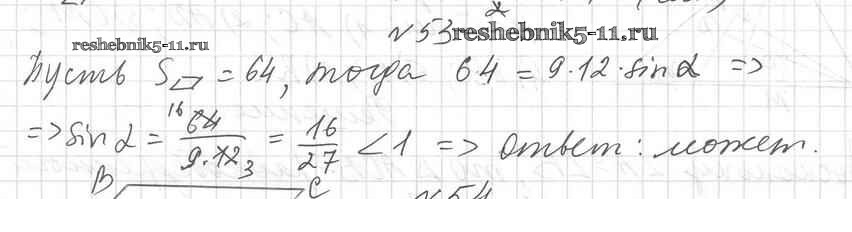 №53
reshebnik5-11.ru
reshebnik5-11.ru
Пусть S▱ = 64, тогда 64 = 9·12·sinα =>
=> sinα = 64/9·12 = 16/27 < 1 => ответ: может.
16
3
B C
№54